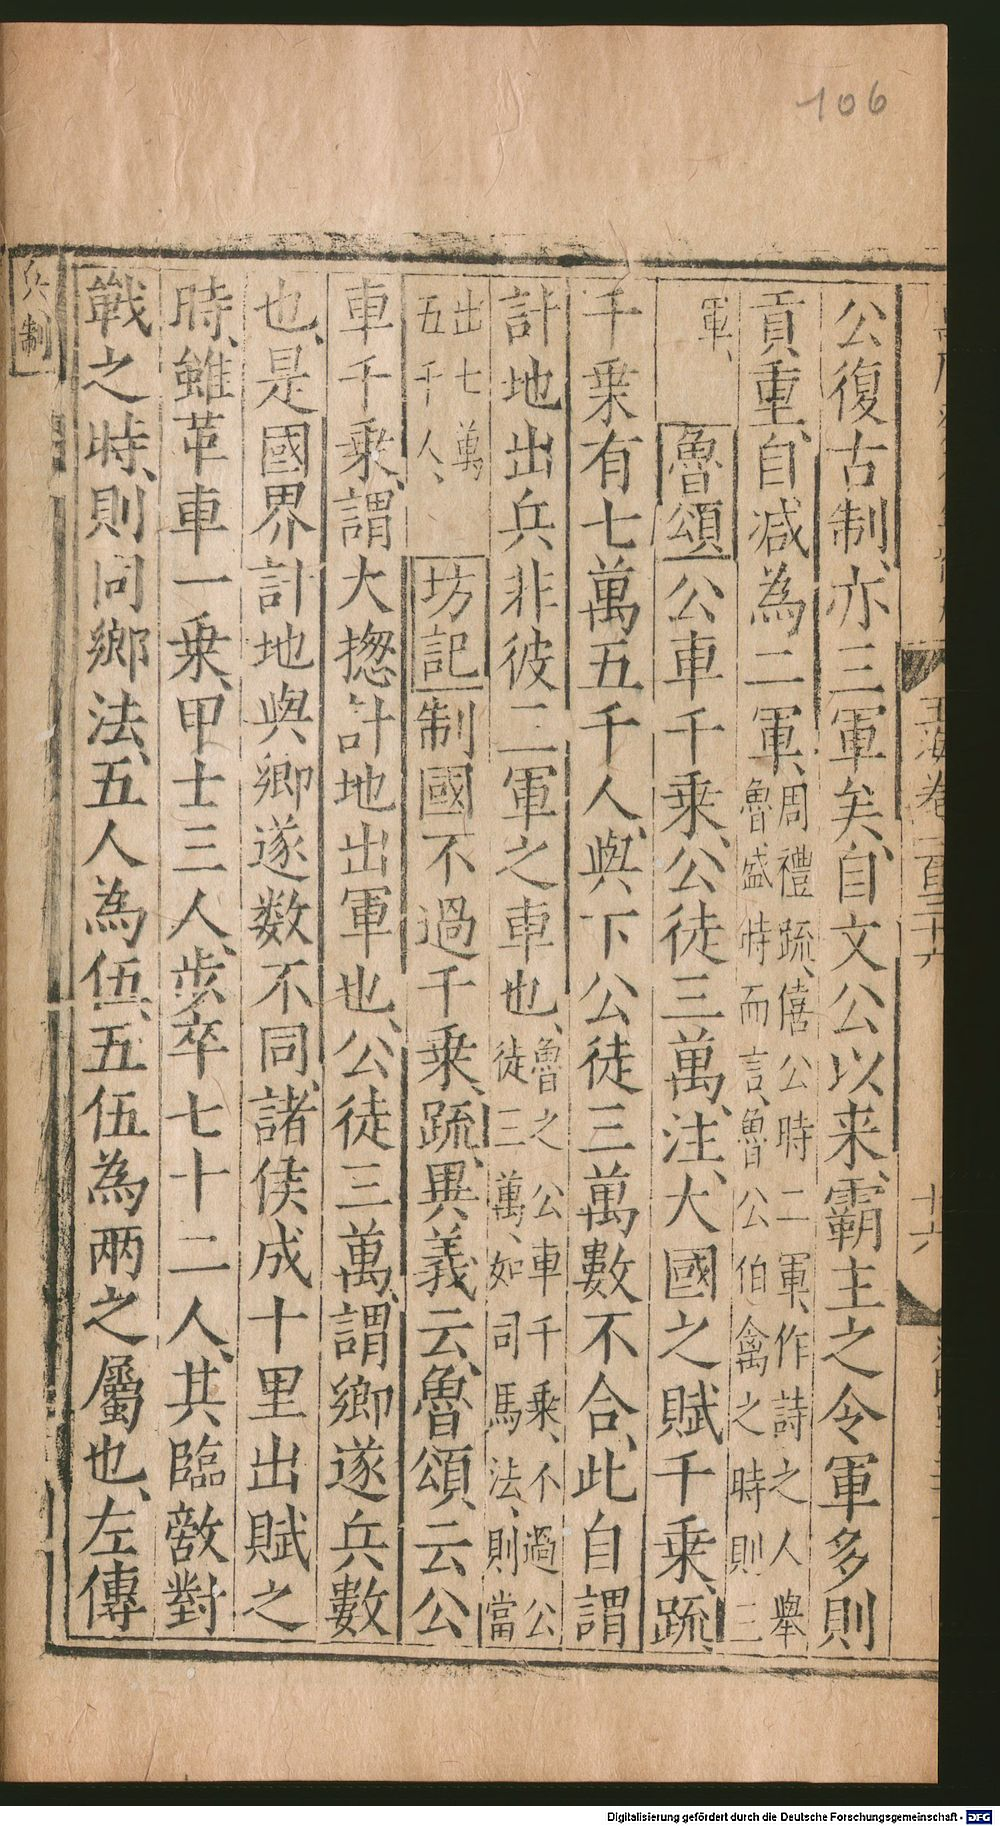 106
玉海卷一百三十六
十六
公復古制、亦三軍矣、自文公以来、霸主之令軍多則
貢重、自减為二軍、周禮疏、僖公時二軍、作詩之人舉魯盛時而言、魯公伯禽之時則三
軍、魯頌公車千乗、公徒三萬、注、大國之賦千乗、疏、
千乗有七萬五千人、與下公徒三萬數不合、此自謂
計地出兵非彼二軍之車也、魯之公車千乗、不過公徒三萬、如司馬法、則當
出七萬五千人、坊記制國不過千乗、疏、異義云、魯頌、云公
車千乗、謂大揔計地出軍也、公徒三萬、謂鄉遂兵數
也、是國界計地與鄉遂数不同、諸侯成十里出賦之
時、雖革車一乗、甲士三人、步卒七十二人、其臨敵對
戰之時、則同鄉法、五人為伍、五伍為两之屬也、左傳
兵制
Digitalisierung gefördert durch die Deutsche Forschungsgemeinschaft - DFG